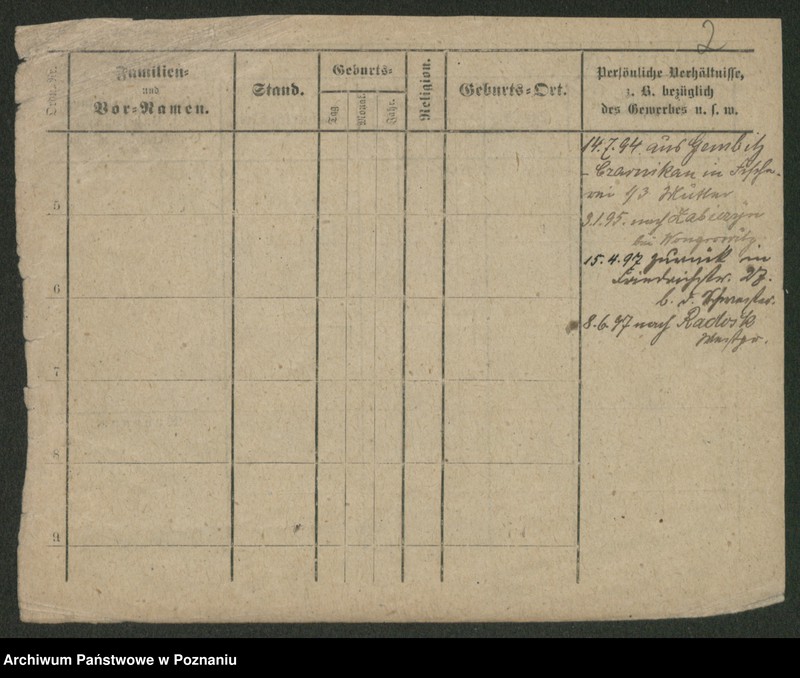 2
Ordn. Nr.
Familien-
und
Vor-Namen.
Stand.
Geburts-
Tag
Monat
Jahr.
Religion.
Geburts-Ort.
Persönliche Verhältnisse,
z. B. bezüglich
des Gewerbes u. s. w.
14.7.94 aus Gembitz
- Czarnikau in Fische-
rei 1/3 Mutter
3.1.95. nach
bei Wongrowitz
15.4.97 zurück in
Friedrichstr. 27.
b. d. Schwester.
8.6.97 nach Radosk
Westpr.
5
6
7
8
9
Archiwum Państwowe w Poznaniu